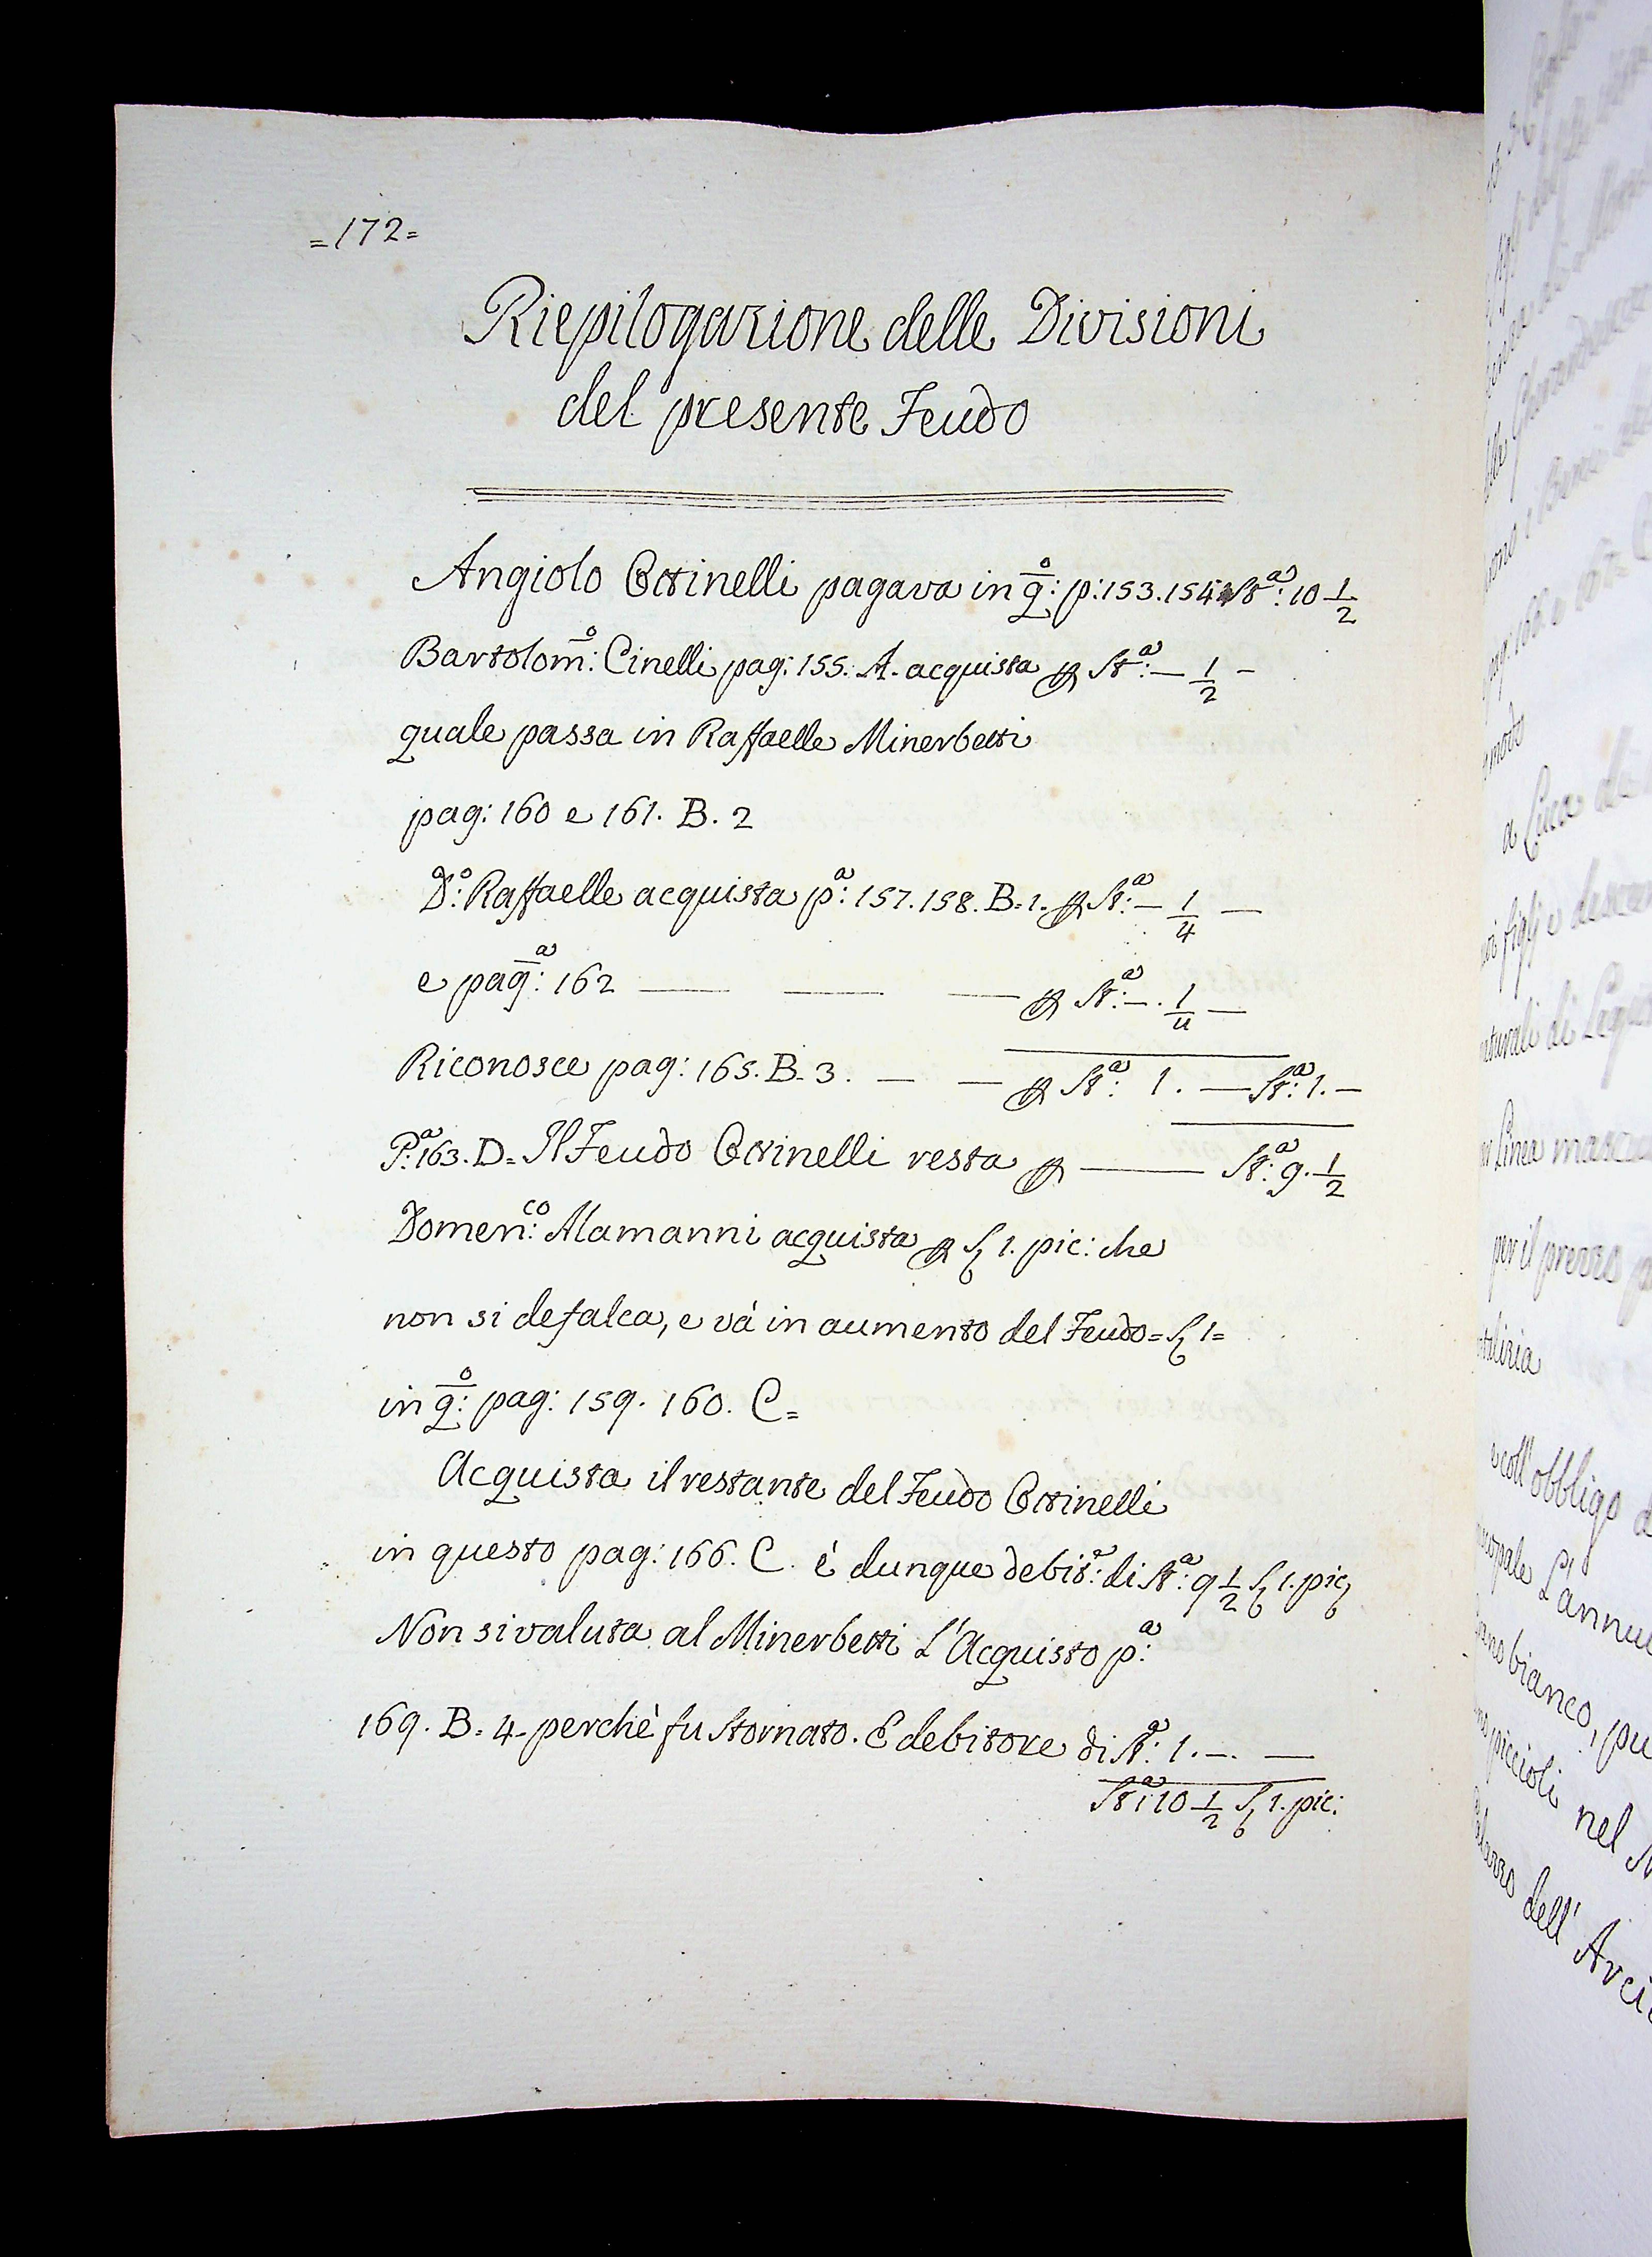 =172=
Riepilogazione delle Divisioni
del presente Feudo
Angiolo Ottinelli pagava in q:º p: 153. 154 Stª: 10 1/2
Bartolomº: Cinelli pag: 155. A. acquista p Stª: — 1/2 —
quale passa in Raffaelle Minerbetti
pag: 160 e 161. B. 2
Dº: Raffaelle acquista pª: 157. 158. B. 1. p Stª: — 1/4 —
e pagª: 162 — — — p Stª: —. 1/4 —
Riconosce pag: 165. B. 3. — — p Stª: 1. — Stª: 1. —
Pª: 163. D= Il Feudo Ottinelli resta p — Stª: 9. 1/2
Domenco: Alamanni acquista p 1. pic: che
non si defalca, e và in aumento del Feudo = 1=
in qº: pag: 159. 160. C=
Acquista il restante del Feudo Ottinelli
in questo pag: 166. C. é dunque debitº: di Stª: 9 1/2 1. pic
Non si valuta al Minerbetti L'Acquisto pª:
169. B. 4. perchè fu stornato. E debitore di Stª: 1. —. —
Stª: 10 1/2 1. pic:
a Luca di
figlj e descen
naturali di Legi
Linea mascu
per il prezzo p
e coll'obbligo d
L'annuo
bianco, pu
piccioli nel M
dell' Arci